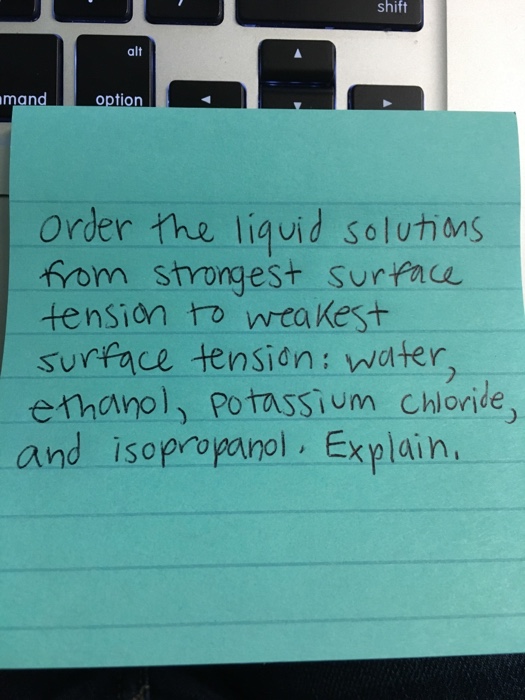 shift
alt
mand
option
Order the liquid solutions
from strongest surface
tension to weakest
surface tension: water,
ethanol, potassium chloride,
and isopropanol. Explain.